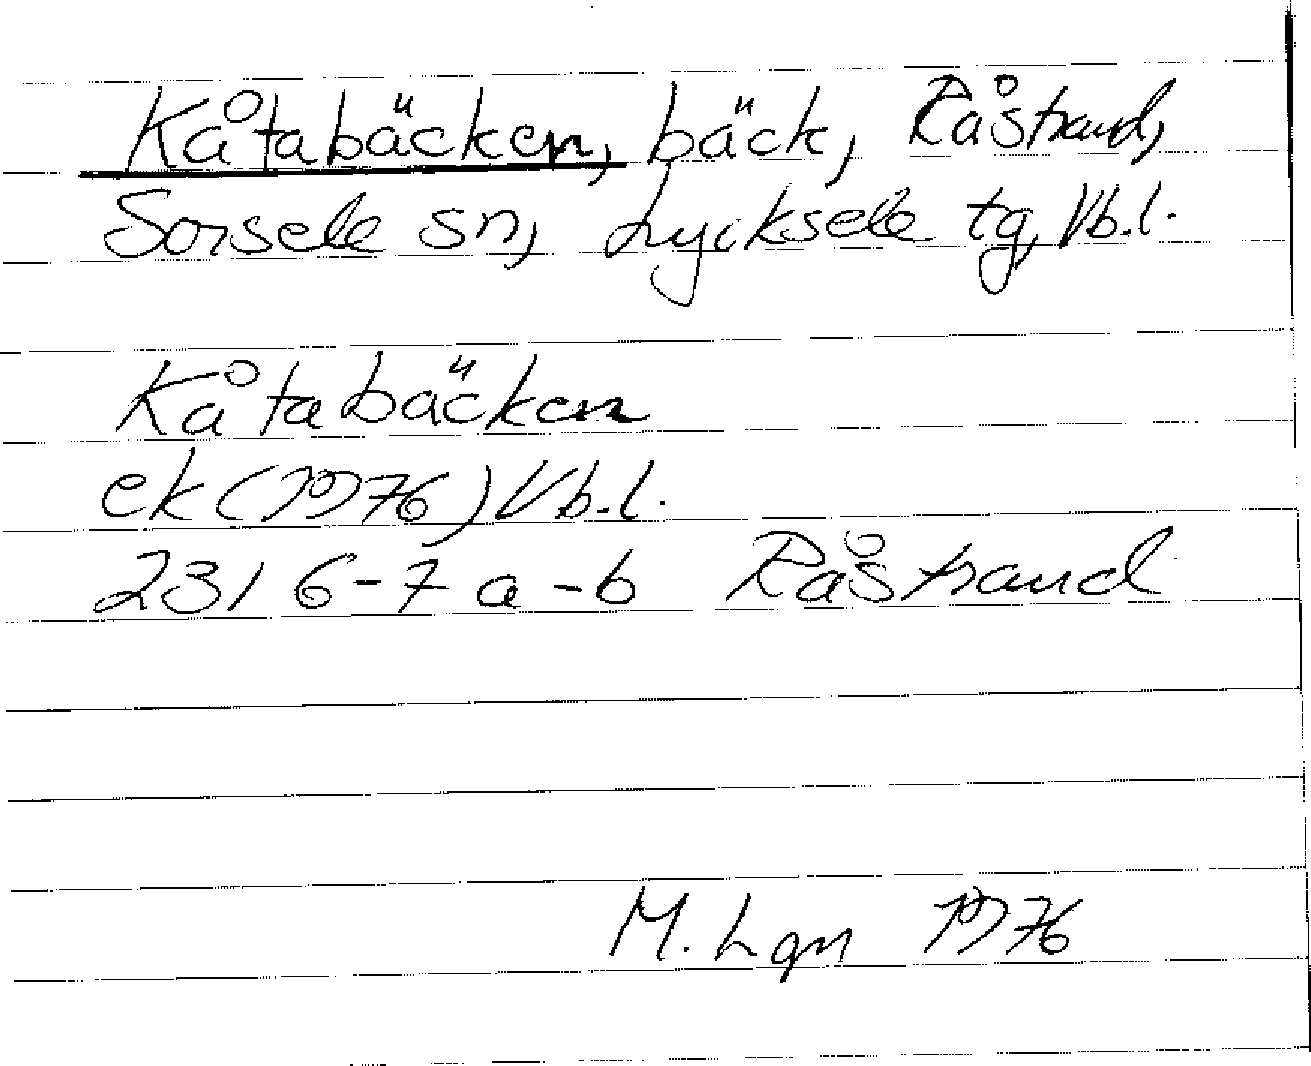 Kåtabäcken, bäck, Råstrand,
Sorsele sn, Lycksele tg, Vb.l.
Kåtabäcken
ek (1976) Vb.l.
231 6-7 a-b Råstrand
M. Lgn 1976